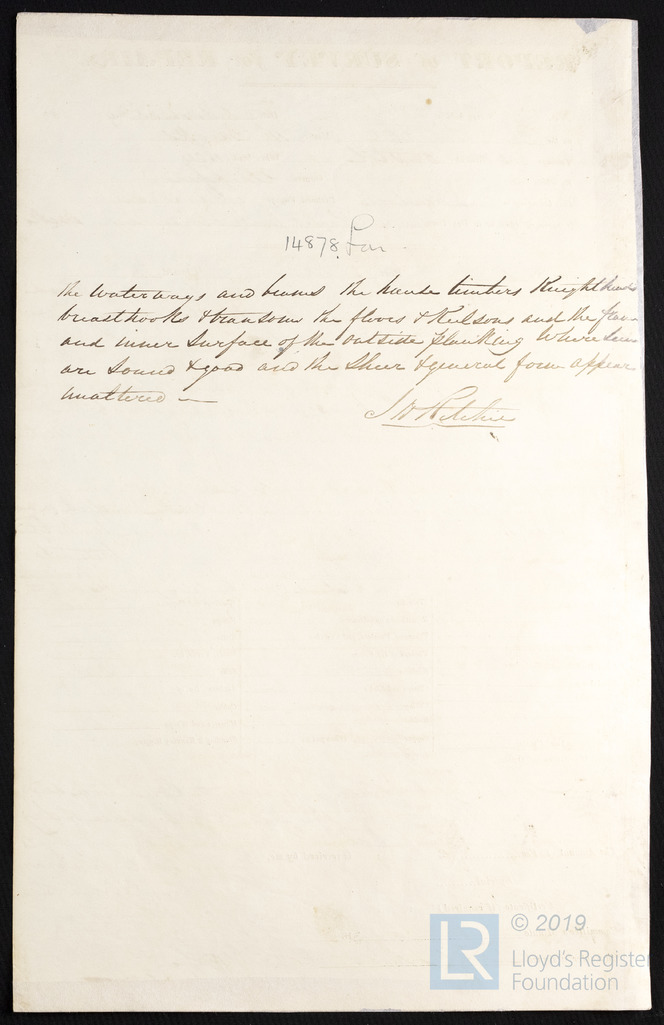 14878 Lon
the Waterways and beams the hawse timbers Knightheads
breasthooks & transoms the floors & Keelsons and the
and inner surface of the outside planking Where seen
are sound & good and the sheer & general form appear
unaltered —
J W Ritchie
LR © 2019
Lloyd's Register
Foundation